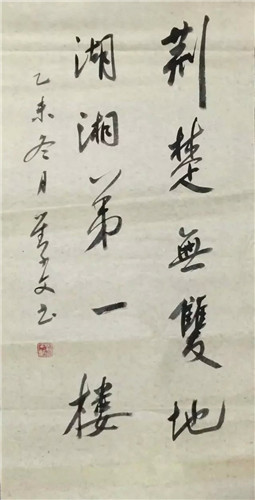 荆楚無雙地
湖湘第一樓
乙未冬月
文书